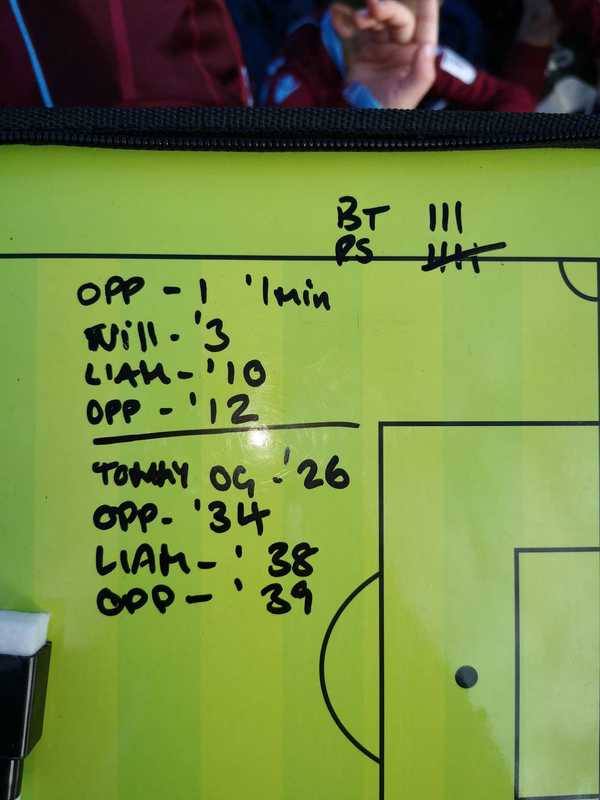 BT III
RS
OPP - 1 '1min
Will - '3
LIAM - '10
OPP - '12
TOMMY OG - '26
OPP - '34
LIAM - '38
OPP - '39